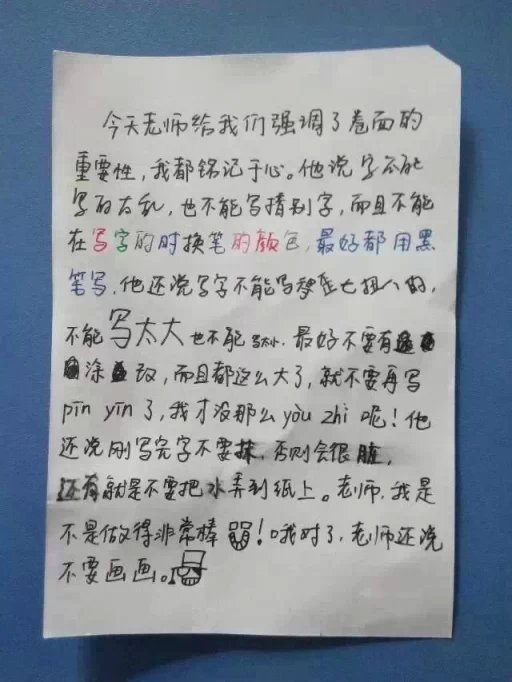 今天老师给我们强调了卷面的
重要性，我都铭记于心。他说字不能
写的太乱，也不能写猎别字，而且不能
在写字的时换笔的颜色，最好都用黑
笔写，他还说写字不能写歪七扭八的，
不能写太大也不能写太小，最好不要有
涂改，而且都这么大了，就不要再写
pīn yīn了，我才没那么yòu zhi呢！他
还说刚写完字不要抹，否则会很脏，
还有就是不要把水弄到纸上。老师，我是
不是做得非常棒！哦对了，老师还说
不要画画。